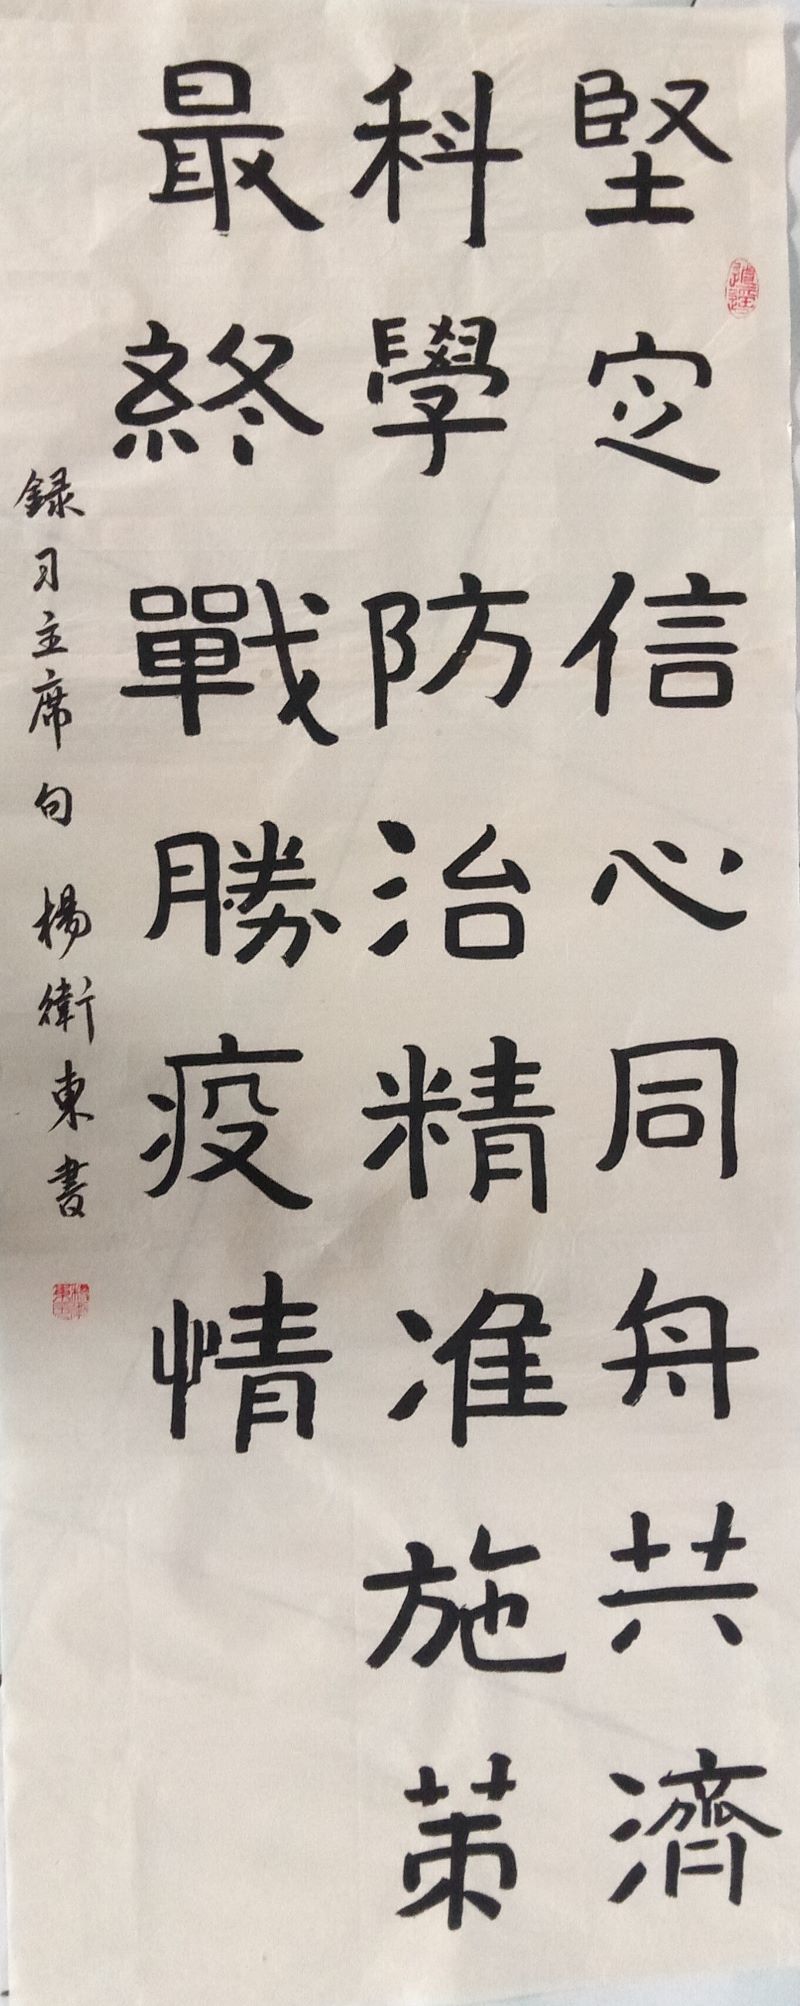 堅定信心同舟共濟
科學防治精准施策
最終戰勝疫情
録习主席句 楊衛東書